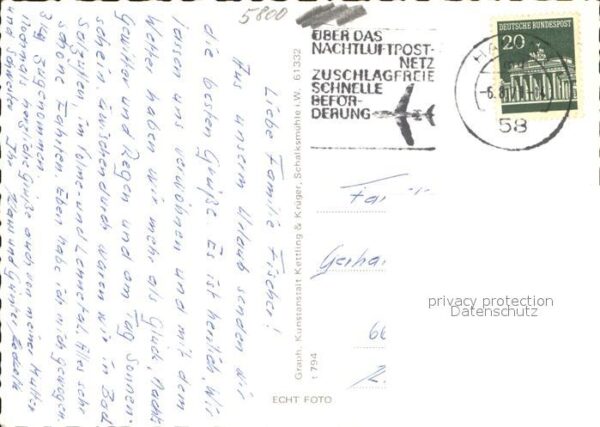 5800
ÜBER DAS
NACHTLUFTPOST-
NETZ
ZUSCHLAGFREIE
SCHNELLE
BEFÖR-
DERUNG
DEUTSCHE BUNDESPOST
20
HA
-6.8.
58
Liebe Familie Fischer!
Aus unserm Urlaub senden wir
die besten Grüße. Es ist herrlich. Wir
lassen uns verwöhnen und mit dem
Wetter haben wir mehr als Glück, Nachts
Gewitter und Regen und am Tag Sonnen-
schein. Zwischendurch waren wir in Bad
Salzuflen, im Volme- und Lennetal. Alles sehr
schöne Fahrten. Eben habe ich mich gewogen.
3 kg zugenommen.
Nochmals herzliche Grüße auch von meiner Mutter
und Günter
Graph. Kunstanstalt Kettling & Krüger, Schalksmühle i.W. 61332
t 794
ECHT FOTO
Fa
Gerha
66
privacy protection
Datenschutz